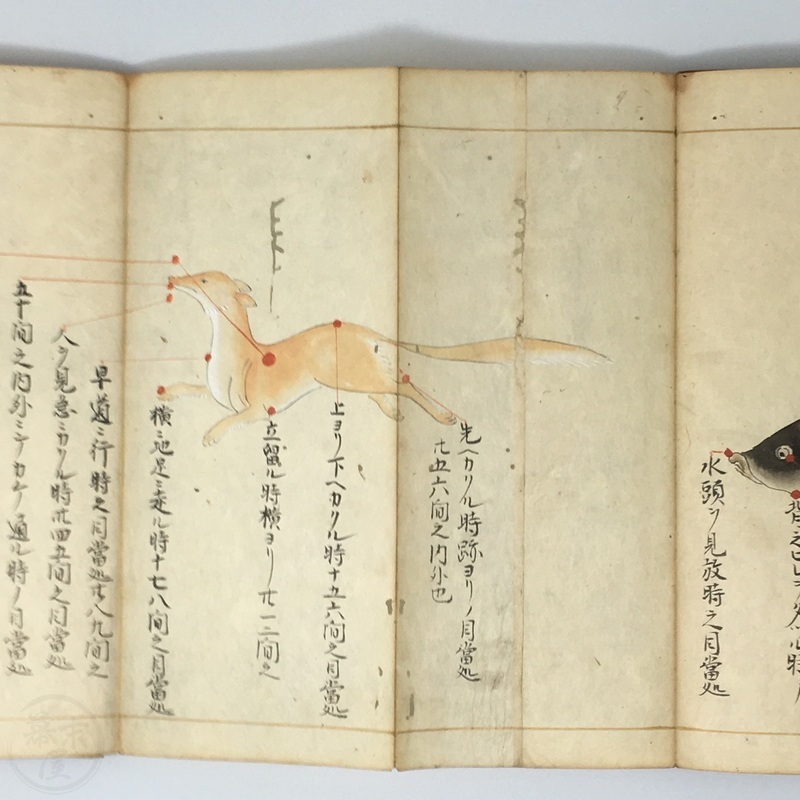 水頭ヲ見放時之目當処
先ヘカヽル時跡ヨリノ目當処
廿五六間之内外也
上ヨリ下ヘカヽル時十五六間之目當処
立留ル時横ヨリノ廿一二間之
横ニ地足ニ走ル時十七八間之目當処
早道ニ行時之目當処廿八九間之
人ヲ見急ニカヽル時廿四五間之目當処
五十間之内外ニテカケノ通ル時ノ目當処